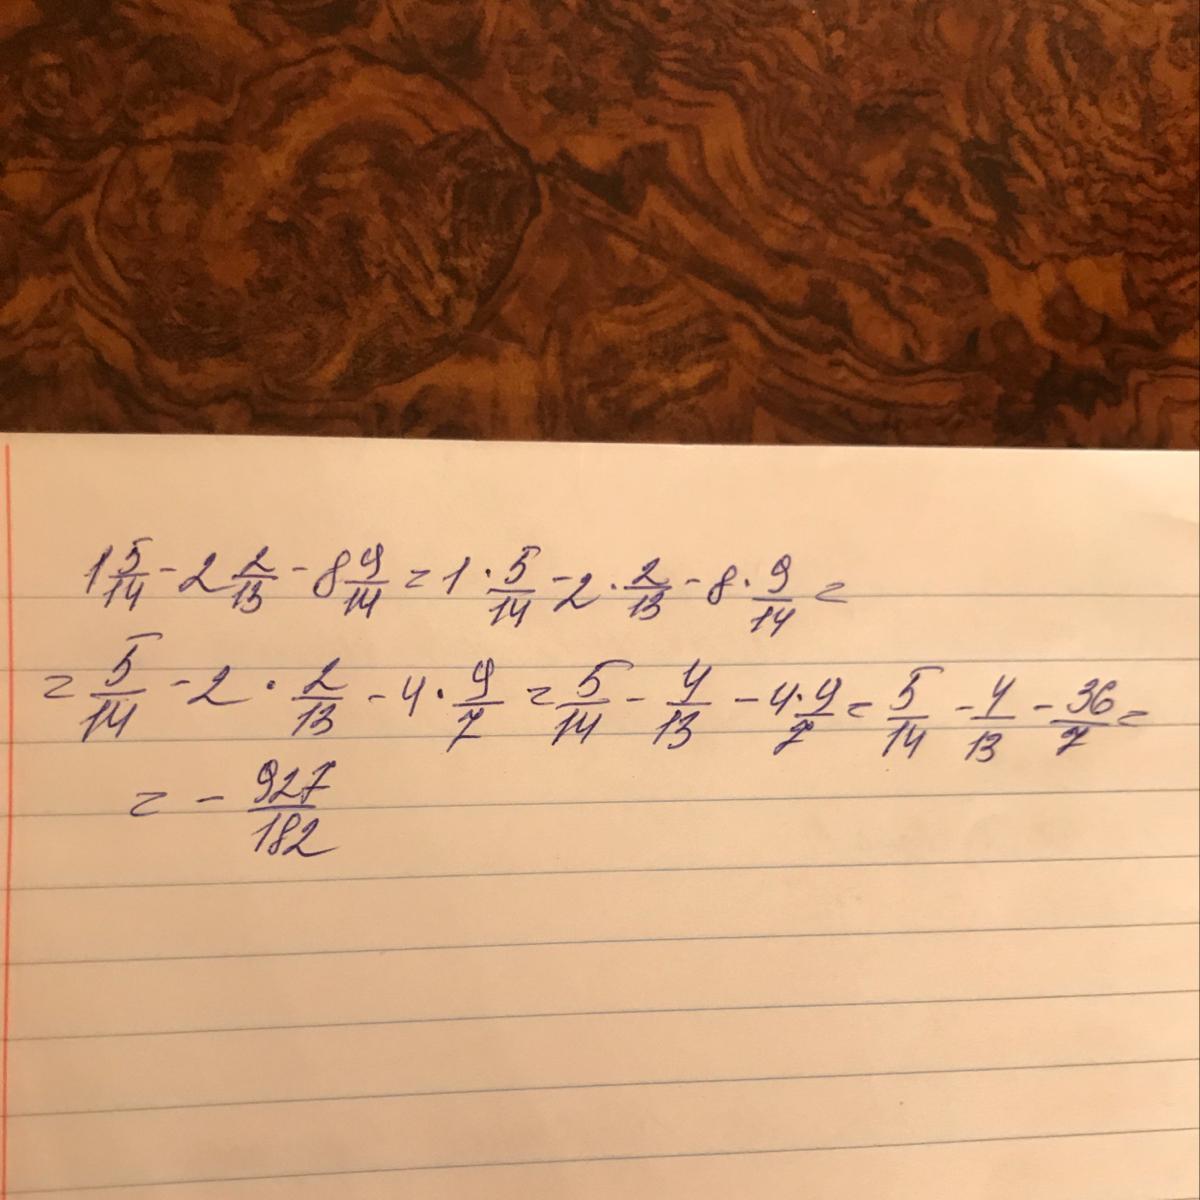 1 5/14 - 2 2/13 - 8 9/14 = 1 · 5/14 - 2 · 2/13 - 8 · 9/14 =
= 5/14 - 2 · 2/13 - 4 · 9/7 = 5/14 - 4/13 - 4 · 9/7 = 5/14 - 4/13 - 36/7 =
= - 927/182